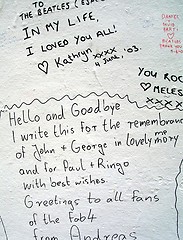 TO THE
BEATLES (ESP
IN MY LIFE,
I LOVED YOU ALL!
♡ Kathryn xxxx
4 JUNE, '03
YOU RO
♡ MELES
xxxxx
Hello and Goodbye
I write this for the remembrance
of John + George in lovely memory
and for Paul + Ringo
with best wishes.
Greetings to all fans
of the Fab4
from Andreas